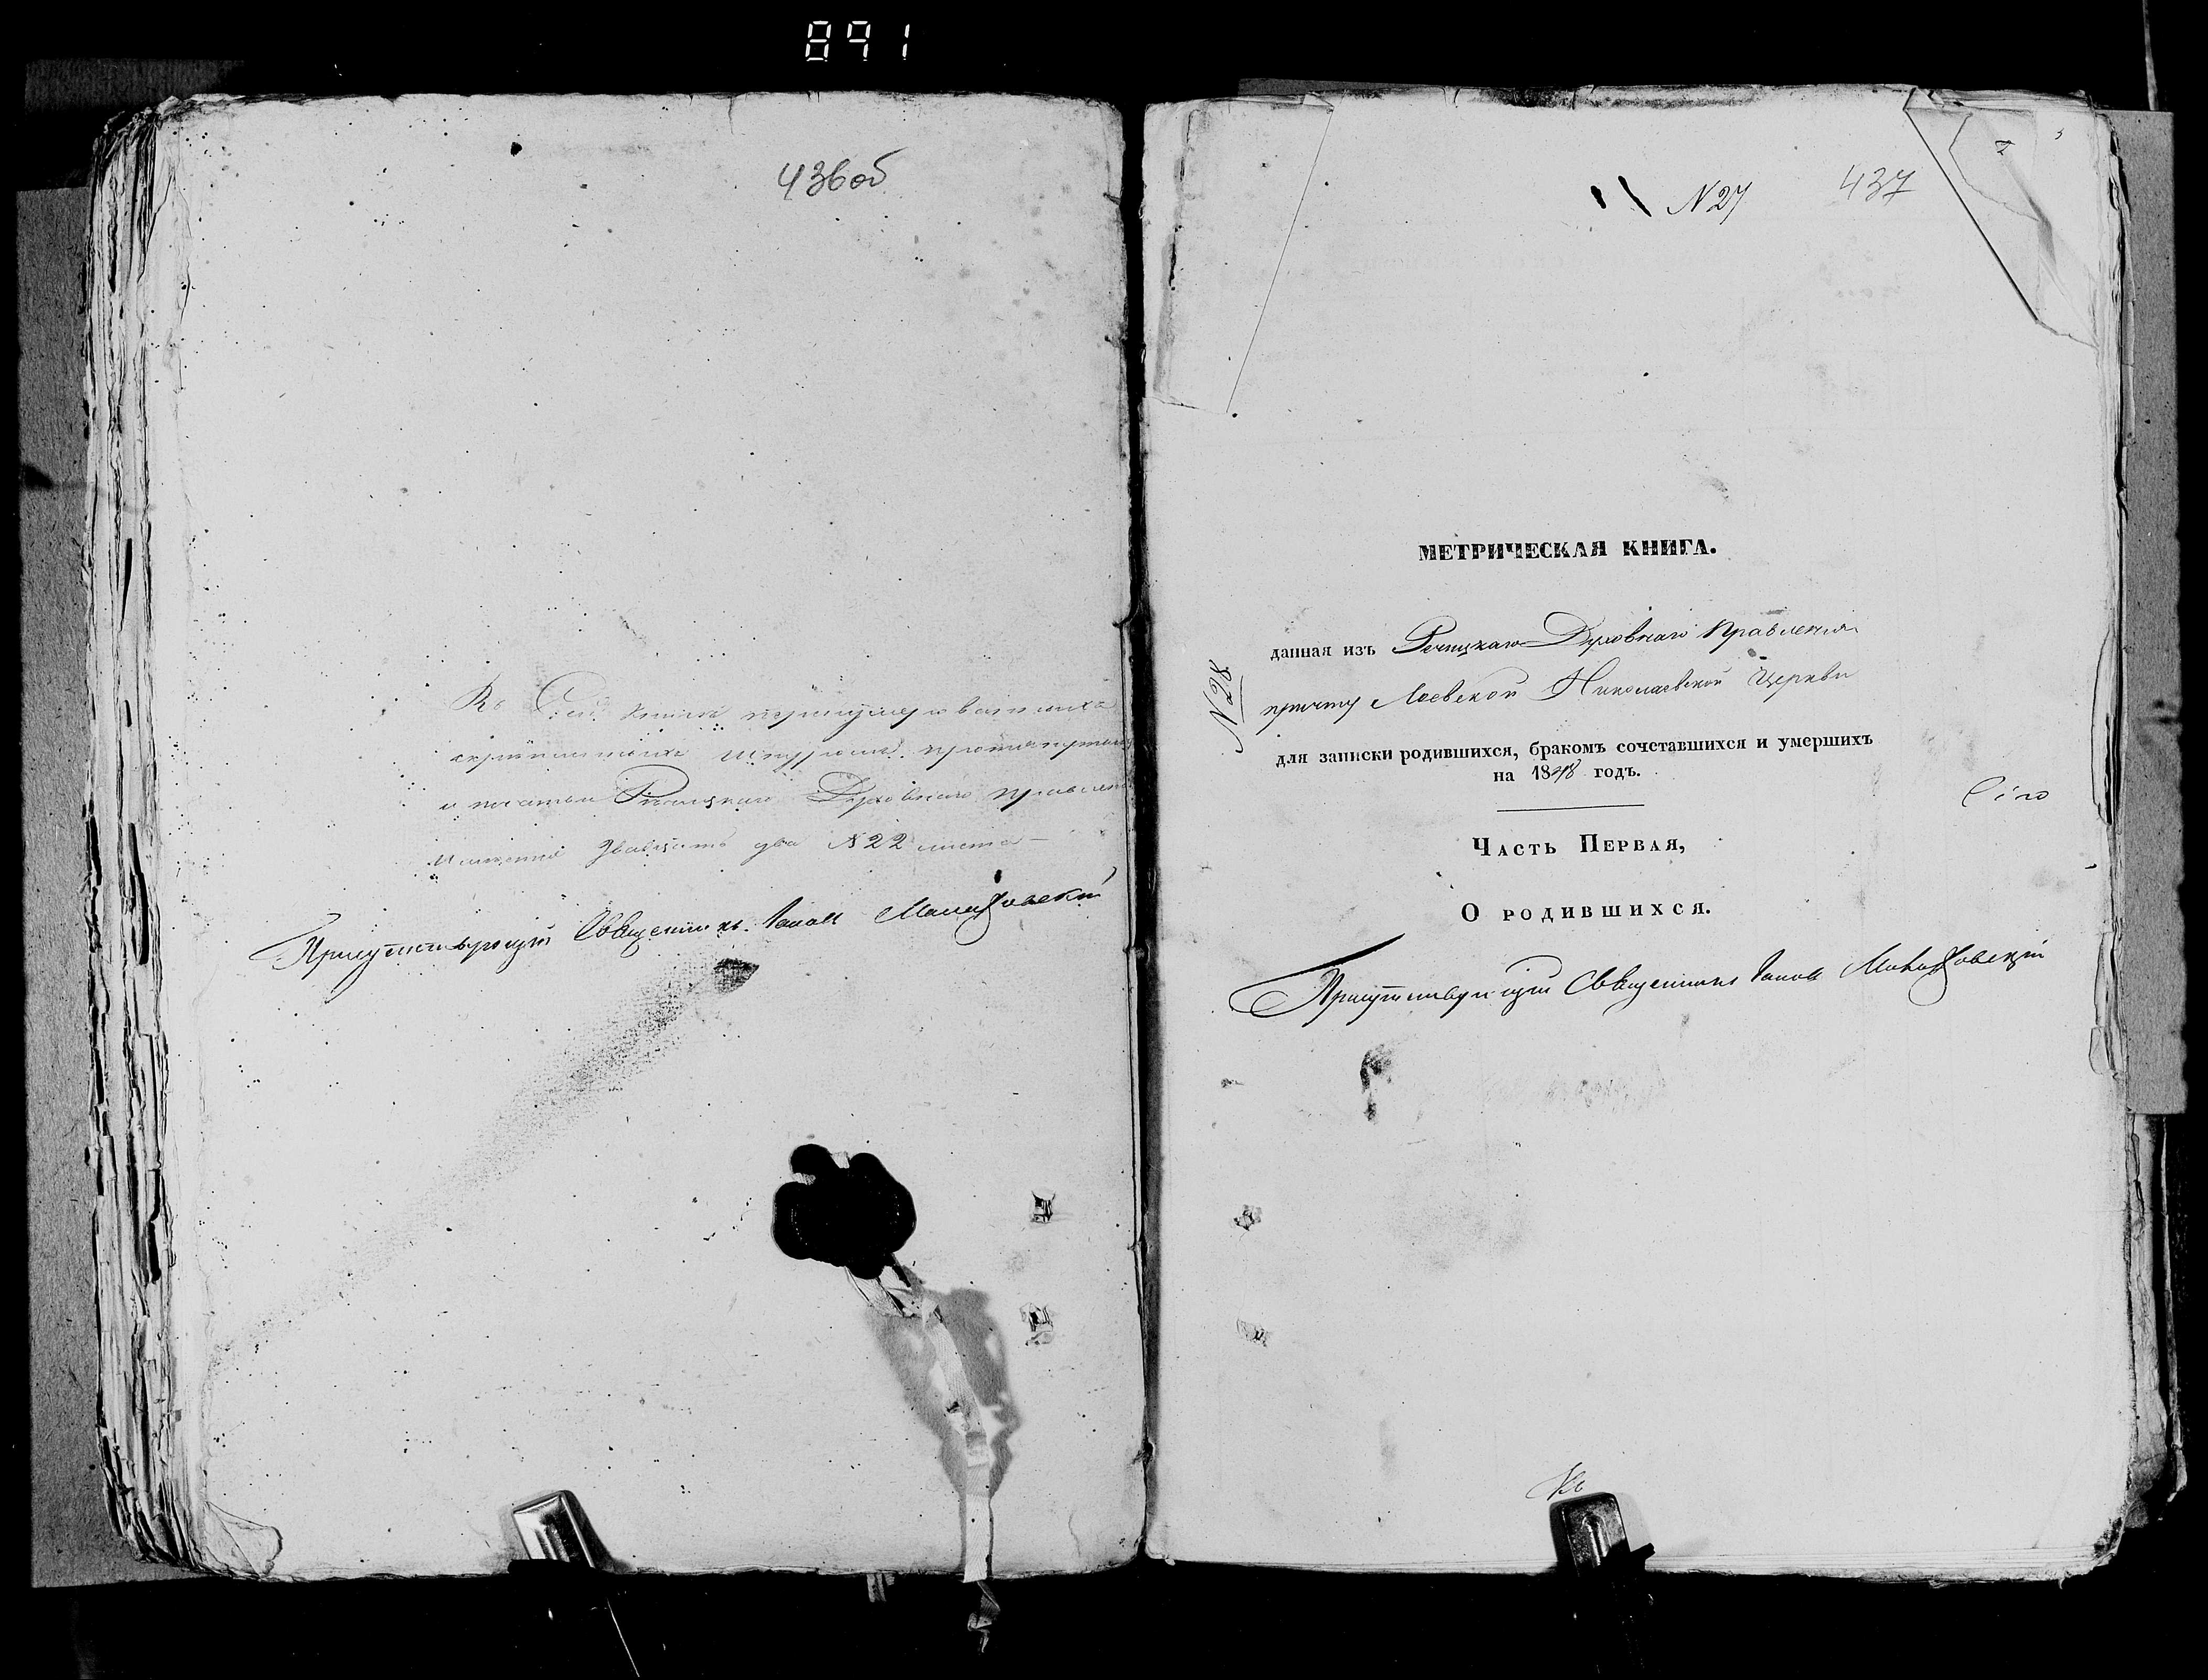 891
436об
Въ сей книгѣ перенумерованныхъ
скрѣпленныхъ шнуромъ протянутыхъ
и печатью Рѣчицкаго Духовнаго Правлен
двадцать два №22 листа
Присутствующій Священникъ Іоаннъ
N27 437
МЕТРИЧЕСКАЯ КНИГА.
данная изъ Речицкаго Духовнаго Правленія
N28
причту Лоевской Николаевской Церкви
для записки родившихся, бракомъ сочетавшихся и умершихъ
на 1848 годъ.
Часть Первая,
О родившихся.
Присутствующій Священникъ Іоаннъ